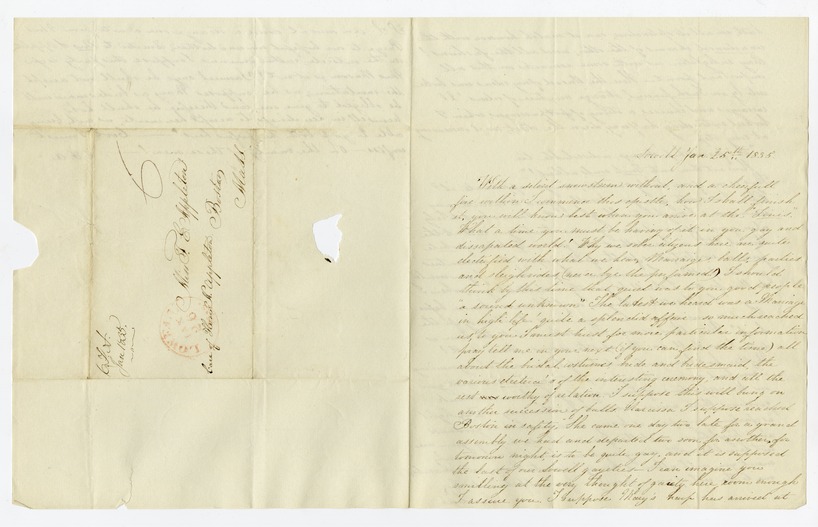 6
Miss F. E. Appleton
Boston
Mass
Care of Appleton
Jan 1835
Lowell Jan 25th 1835
With a silent snowstorm without, and a cheerful
fire within I commence this epistle, how I shall finish
it, you will know best when you arrive at the "finis."
What a time you must be having of it in your gay and
dissipated world! Why we sober citizens here are quite
electrified with what we hear, Marriages balls, parties
and sleighrides, I should
think by this time that quiet was to you good people
"a sound unknown" The latest we heard was a Marriage
in high life! quite a splendid affair so much reached
us, to you I must trust for more particular information
pray tell me in your next (if you can find the time) all
about the bridal, costumes bride and bridesmaid, the
various of the interesting ceremony, and all the
rest worthy of relation. I suppose this will bring on
another succession of balls I suppose reached
Boston in safety. She came one day too late for a grand
assembly we had and departed too soon for another, for
tomorrow night is to be quite gay, and it is supposed
the last of our Lowell gayeties. I can imagine you
smiling at the very thought of gaiety here, enough
I assure you. I suppose Mary's harp has arrived at